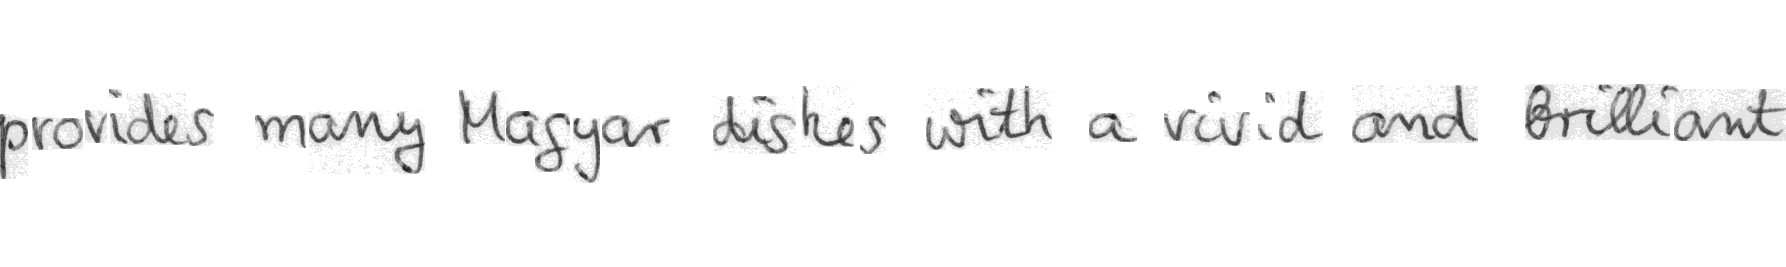 provides many Magyar dishes with a vivid and brilliant